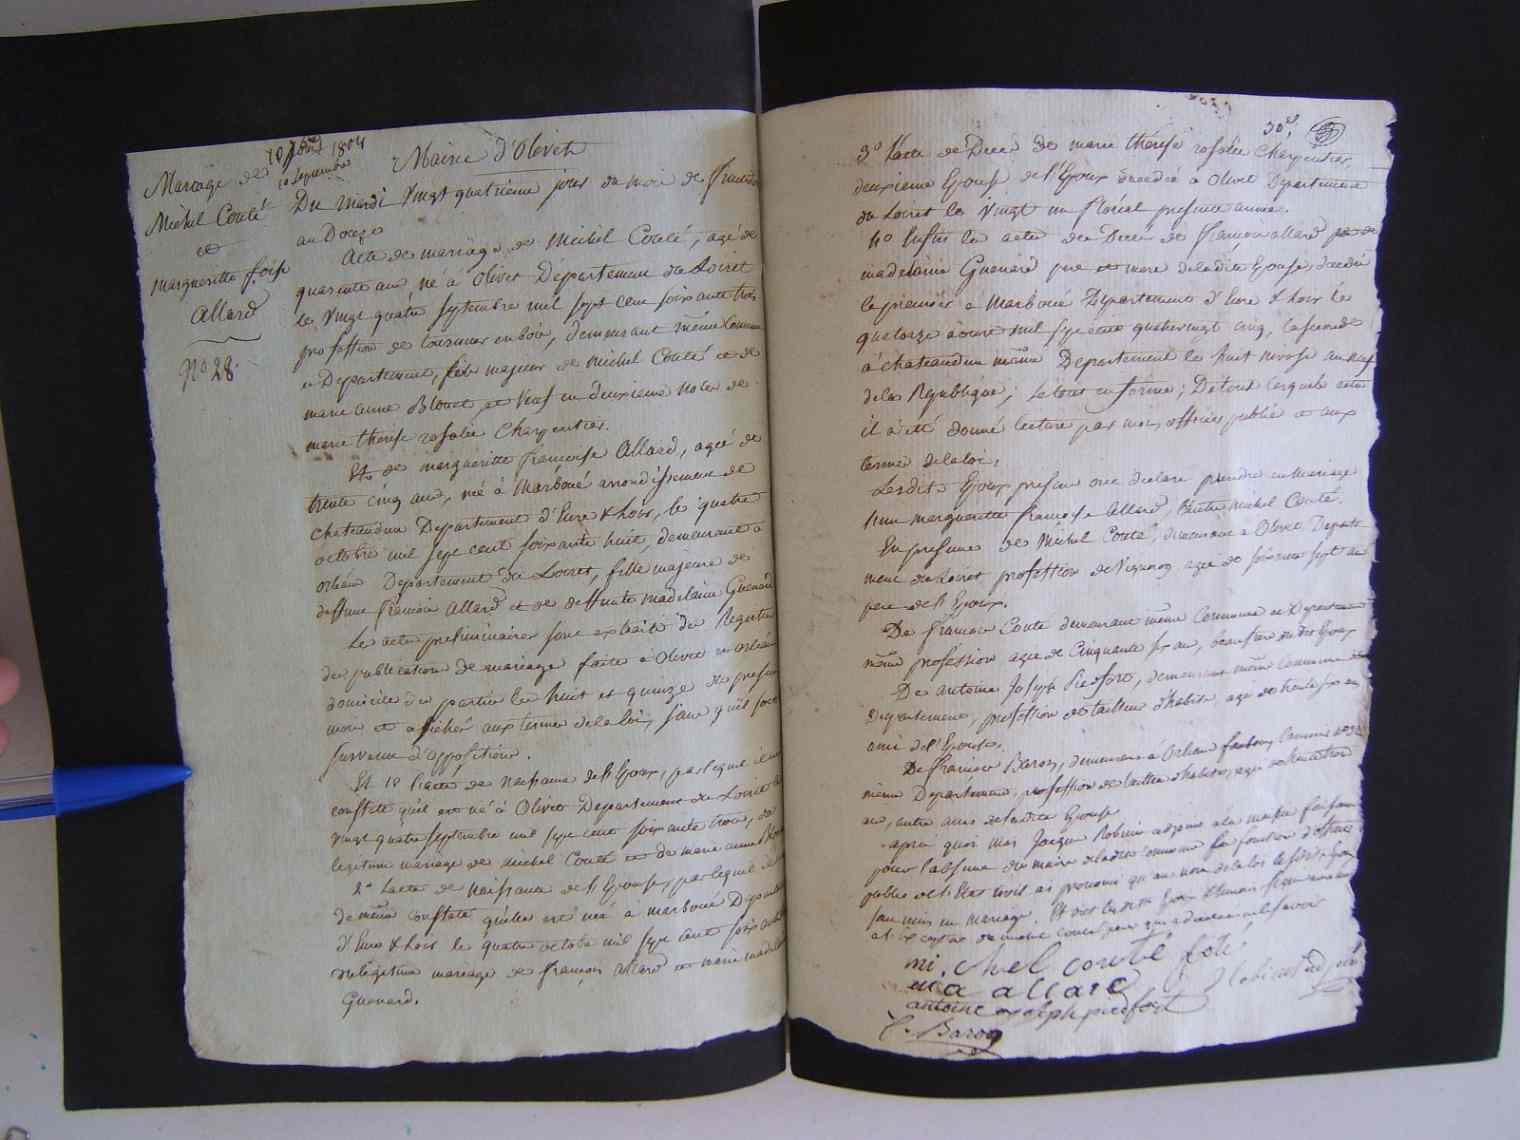 10 1804
10 Septembre
Mariage de
Michel Couté
et
Margueritte fçoise
Allard
No. 28.
Mairie d'Olivet
Du Mardi Vingt quatrieme jour du mois de
an Douze
Acte de mariage de Michel Couté, agé de
quarente ans né à Olivet Département du Loiret
le Vingt quatre Septembre mil sept cent soixante trois
profession de tourneur en bois, demeurant même Commune
et Département, fils majeur de Michel Couté et de
marie anne Blouet et Veuf en deuxieme noces de
marie therese rosalie Charpentier.
Et de margueritte francoise Allard, agée de
trente cinq ans, née à Marboué arrondissement de
chateaudun Département d'Eure & Loir, le quatre
octobre mil sept cent soixante huit, demeurant à
orleans Département du Loiret, fille majeure de
deffunt françois Allard et de deffunte madelaine Guenard
Les actes preliminaires sont extraits des Registres
de publication de mariage faite à Olivet et orleans
domicile des parties les huit et quinze du present
mois et affiché aux termes de la loi, sans qu'il soit
survenu d'opposition.
Et 1º l'acte de Naissance de l'Epoux, par lequel il
constate qu'il est né à Olivet Département du Loiret le
vingt quatre septembre mil sept cent soixante trois, du
legitime mariage de Michel Couté et de marie anne
2º l'acte de Naissance de l'Epouse, par lequel
de même constaté qu'elle est née à marboué
d'Eure & Loir le quatre octobre mil sept cent soixante
du legitime mariage de françois Allard et marie madelaine
Guenard.
30e.
3º l'acte de Deces de marie thérese rosalie Charpentier,
deuxieme Epouse de l'Epoux decedée à Olivet Département
du Loiret le Vingt un floréal presente année.
4º Enfin les actes de Deces de françois allard
madelaine Guenard pere et mere de ladite Epouse, decedés
le premier à Marboué Département d'Eure & Loir le
quatorze mil sept cent quatre vingt cinq, la seconde
à chateaudun même Département le huit nivose an
de la République; le tout en forme; De tous lesquels actes
il a été donné lecture par moi, officier public et aux
termes de la loi.
Lesdits Epoux presents ont declaré prendre en Mariage
l'une margueritte françoise Allard, l'autre michel Couté.
En presence de Michel Couté, demeurant à Olivet Départe
ment du Loiret profession de Vigneron, agé de soixante sept ans
pere de l'Epoux.
De francois Couté demeurant même Commune et Département
même profession agé de Cinquante ans, dudit Epoux
De antoine Joseph Piedfort, demeurant même Commune et
Département, profession de tailleur d'habits, agé de trente six ans
ami de l'Epouse.
De francois Baron, demeurant à Orleans faubourg
même Département profession de tailleur d'habits, agé de
ans, autre ami de ladite Epouse
après quoi moi Jacques Robineau adjoint à la mairie faisant
pour l'absence du maire de ladite commune les fonctions d'officier
public de l'Etat civil ai prononcé qu'au nom de la loi lesdits Epoux
sont unis en mariage. Et ont lesdits Epoux & temoins signé avec moi
mi. chel couté
allard
antoine joseph piedfort
f. Baron